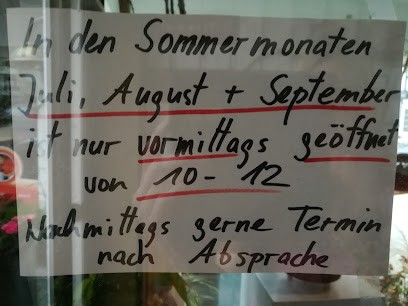 In den Sommermonaten
Juli, August + September
ist nur vormittags geöffnet
von 10 - 12
Nachmittags gerne Termin
nach Absprache